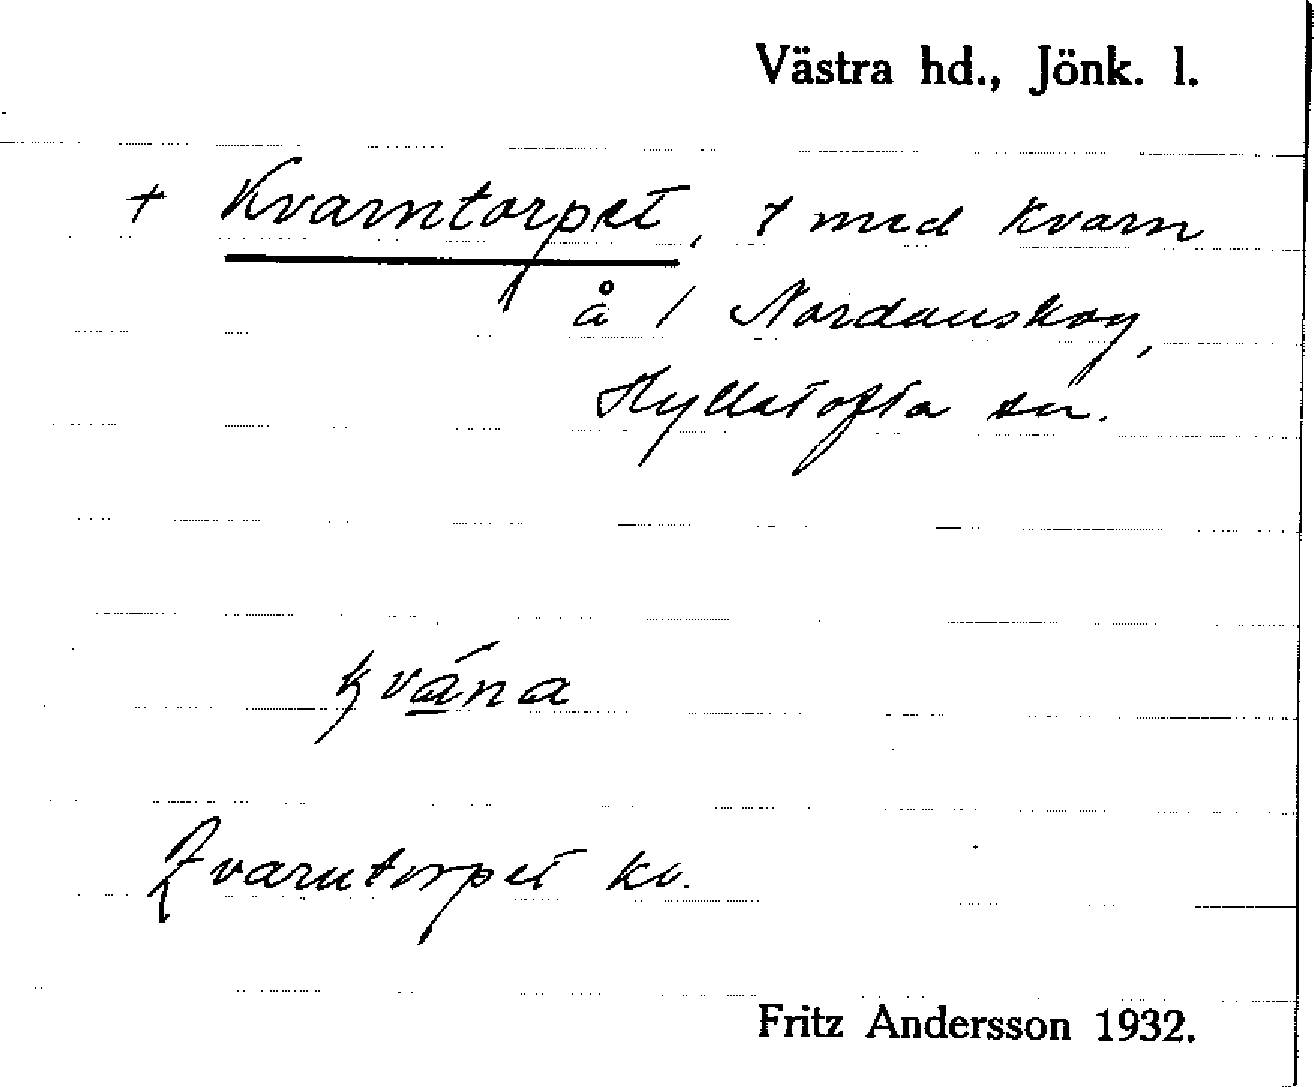 Västra hd., Jönk. l.
+ Kvarntorpet, t med kvarn
å / Nordanskog,
Hyllstofta sn.
kvána
Kvarntorpet kv.
Fritz Andersson 1932.